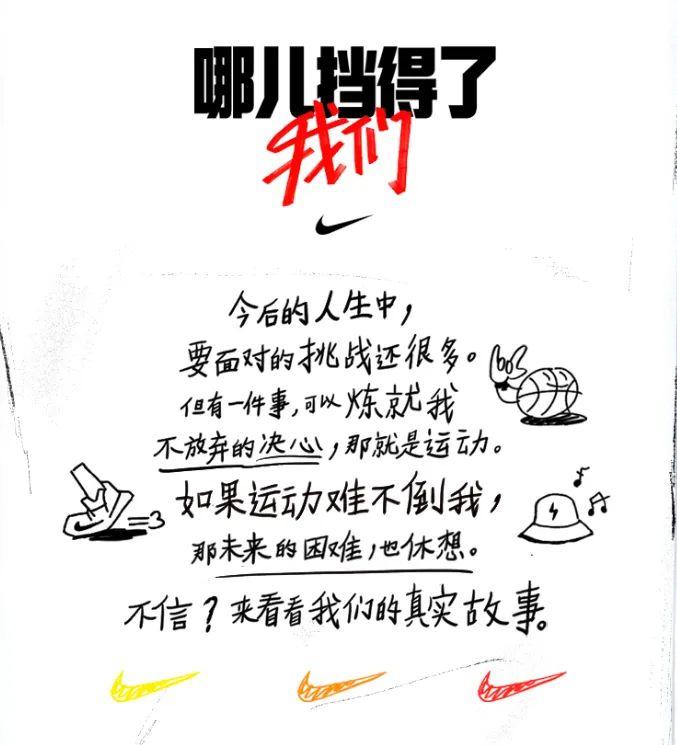 哪儿挡得了
我们
今后的人生中，
要面对的挑战还很多。
但有一件事，可以炼就我
不放弃的决心，那就是运动。
如果运动难不倒我，
那未来的困难，也休想。
不信？来看看我们的真实故事。